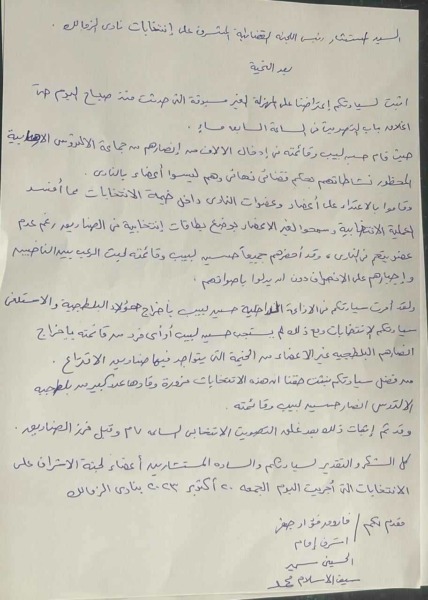 السيد المستشار رئيس اللجنة القضائية المشرف على إنتخابات نادى الزمالك.
بعد التحية
اثبت لسيادتكم إعتراضنا على المهزلة الغير مسبوقة التى حدثت منذ صباح اليوم حتى
اغلاق باب التصويت فى الساعة السابعة مساءً.
حيث قام حسين لبيب وقائمته فى إدخال الالاف من إنصارهم من جماعة الالتروس الارهابية
المحظور نشاطاتهم بحكم قضائى نهائى وهم ليسوا أعضاء بالنادى.
وقاموا بالاعتداء على أعضاء وعضوات النادى داخل خيمة الانتخابات مما أفسد
العملية الانتخابية وسمحوا لغير الاعضاء بوضع بطاقات إنتخابية فى الصناديق رغم عدم
عضويتهم فى النادى، وقد أحضرهم جميعاً حسين لبيب وقائمته لبث الرعب بين الناخبين
وإجبارهم على الانصراف دون ان يدلوا باصواتهم.
ولقد أمرت سيادتكم فى الاذاعة الداخلية حسين لبيب بأخراج هؤلاء البلطجية والا ستلغى
سيادتكم الإنتخابات ومع ذلك لم يستجب حسين لبيب أو أى فرد من قائمته بإخراج
انصارهم البلطجية غير الاعضاء من الخيمة التى يتواجد فيها صناديق الاقتراع.
من فضل سيادتكم نثبت حقنا ان هذه الانتخابات مزورة وقادها عدد كبير من بلطجية
الالتروس انصار حسين لبيب وقائمته.
وقد تم إثبات ذلك بعد غلق التصويت الانتخابى لساعه ٧ م وقبل فرز الصناديق.
كل الشكر والتقدير لسيادتكم والساده المستشارين أعضاء لجنة الاشراف على
الانتخابات التى أجريت اليوم الجمعه ٢٠ أكتوبر ٢٠٢٣ بنادى الزمالك
مقدم لكم / فاروق فؤاد جعفر
اشرف إمام
الحسينى سمير
سيف الاسلام محمد